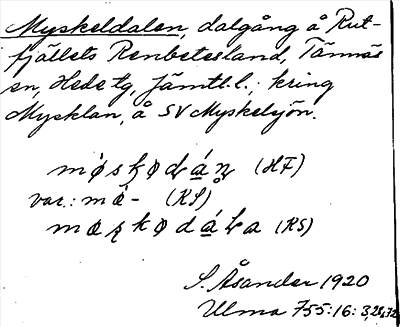 Myskeldalen, dalgång å Rut-
fjällets Renbetesland, Tännäs
sn, Hede tg, Jämtl. l.; kring
Mysklan, å SV Myskelsjön.
(HF)
var.: mø- (KS)
(KS)
S. Åsander 1920
Ulma 755:16: